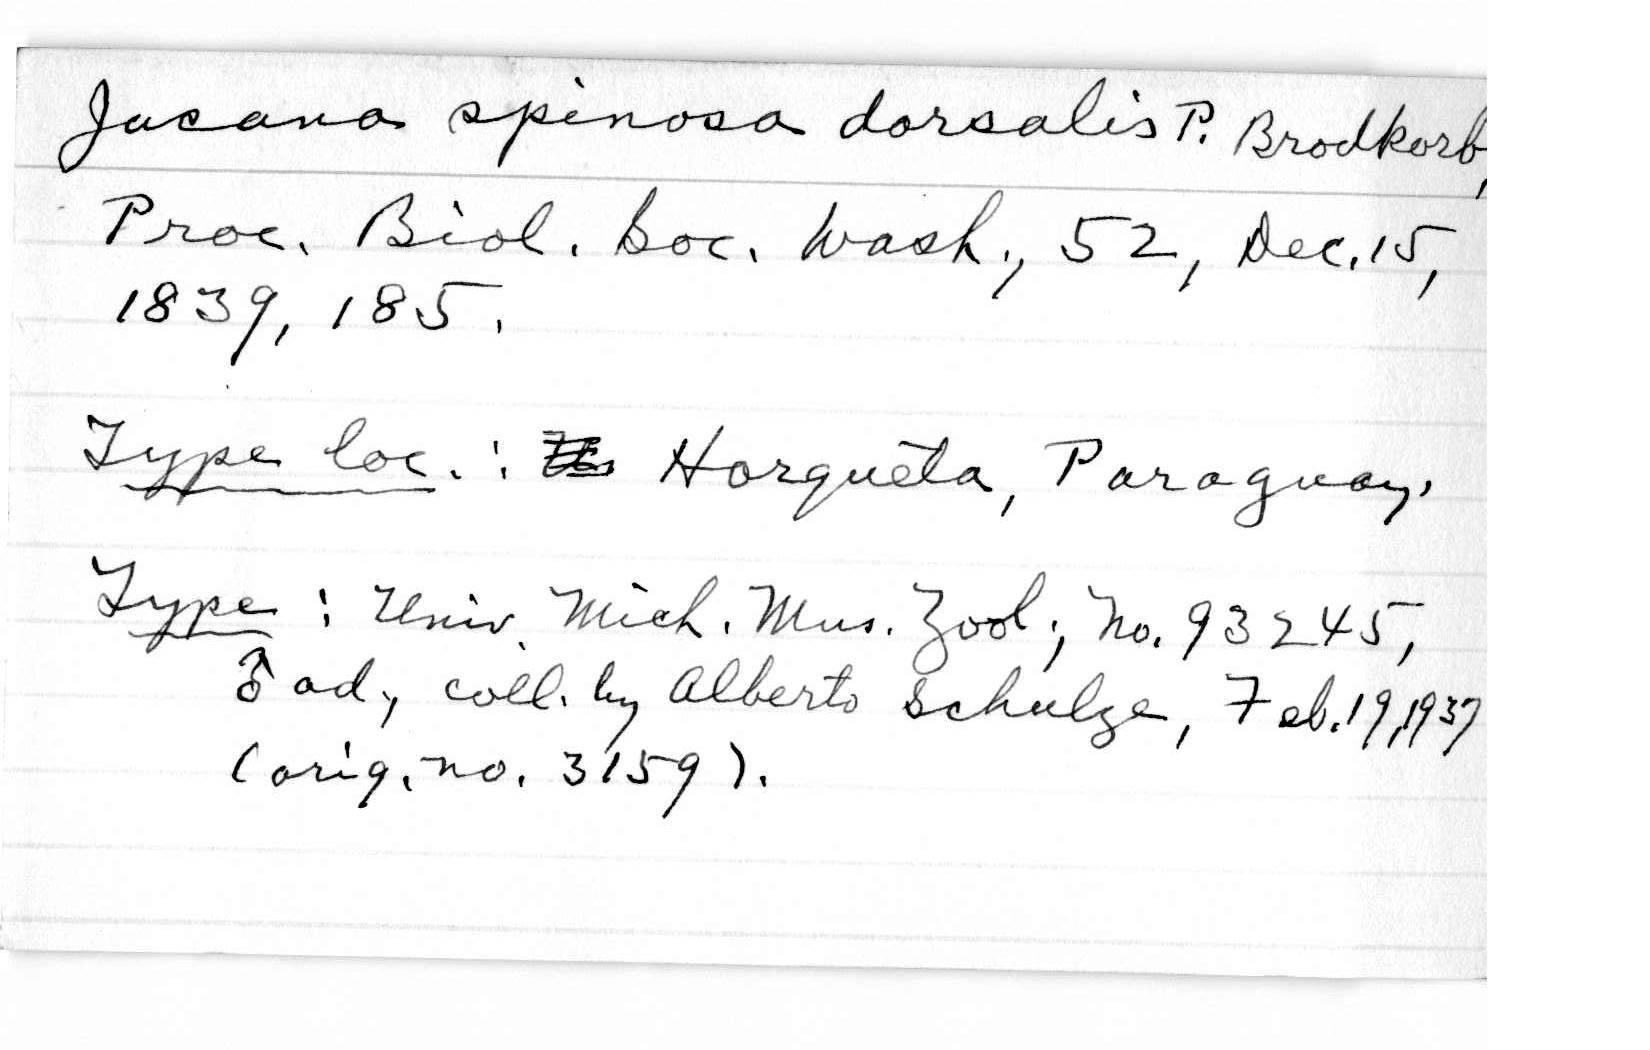 Jacana spinosa dorsalis P. Brodkorb,
Proc. Biol. Soc. Wash., 52, Dec. 15,
1839, 185.
Type loc.: Horqueta, Paraguay.
Type: Univ. Mich. Mus. Zool., No. 93245,
♂ ad., coll. by Alberto Schulze, Feb. 19, 1937
(orig. no. 3159).